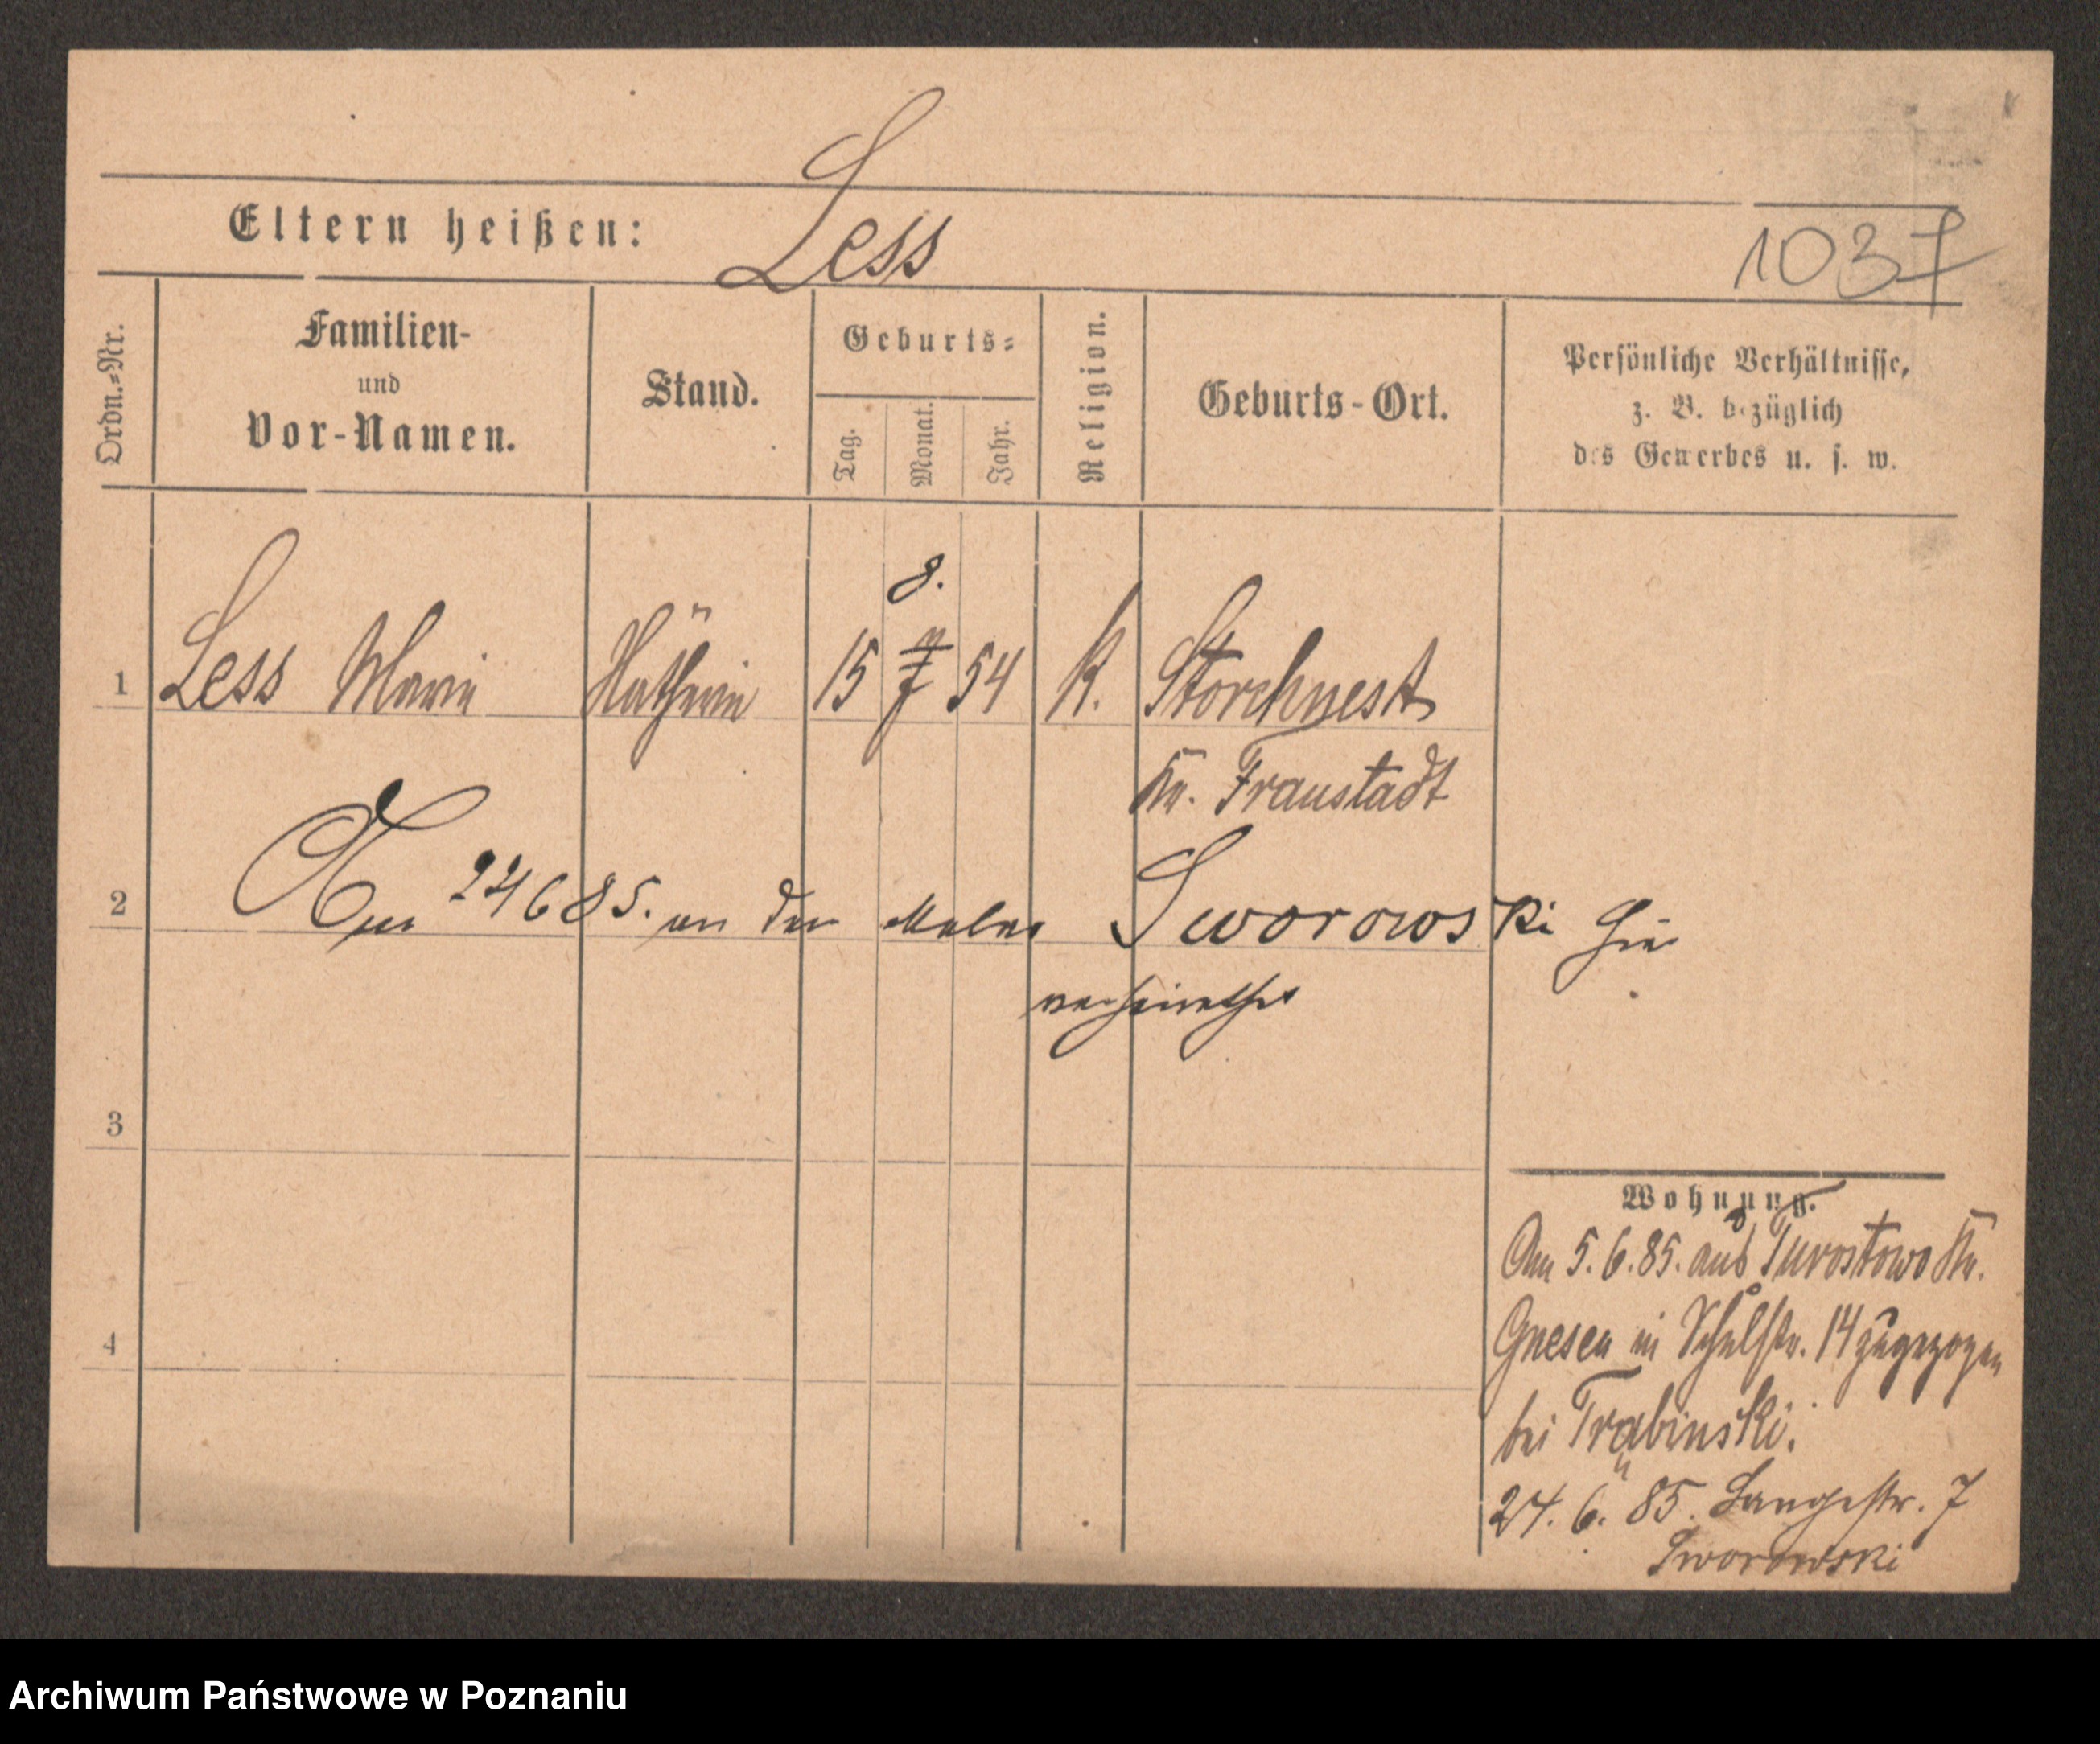 Eltern heißen: Less
1037
Ordn.=Nr.
Familien-
und
Vor-Namen.
Stand.
Geburts=
Tag.
Monat.
Jahr.
Religion.
Geburts-Ort.
Persönliche Verhältnisse,
z. B. bezüglich
des Gewerbes u. s. w.
8.
1 Less Marie Nätherin 15 7 54 K. Storchnest
Kr. Fraustadt
2 Am 24 6 85. an den Maler Sworowski hier
verheirathet
3
4
Wohnung.
Am 5. 6. 85. aus Turostowo Kr.
Gnesen in Schulstr. 14 zugezogen
bei Trąbinski.
24. 6. 85. Langestr. 7
Sworowski
Archiwum Państwowe w Poznaniu